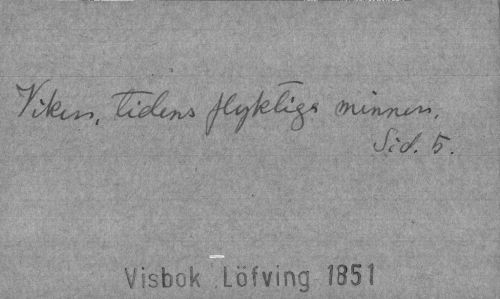 Viken, tidens flyktiga minnen.
Sid. 5.
Visbok Löfving 1851